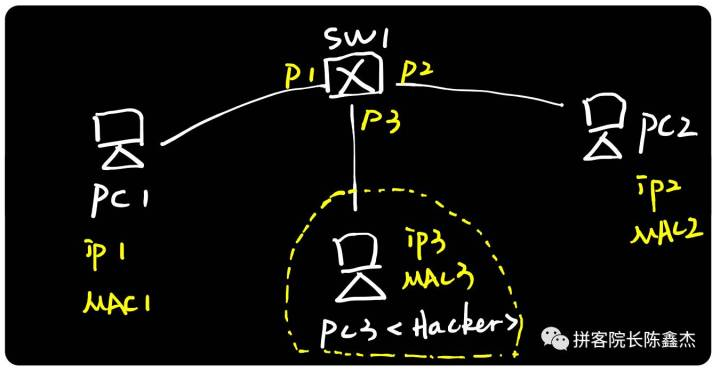 SW1
P1
P2
P3
PC1
ip1
MAC1
PC2
ip2
MAC2
ip3
MAC3
PC3<Hacker>
拼客院长陈鑫杰